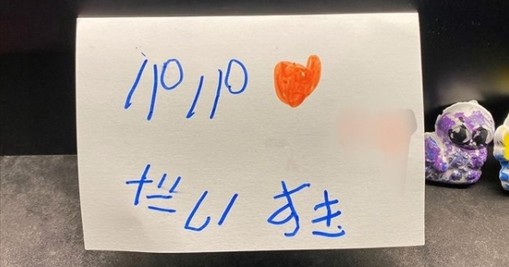 パパ
だいすき